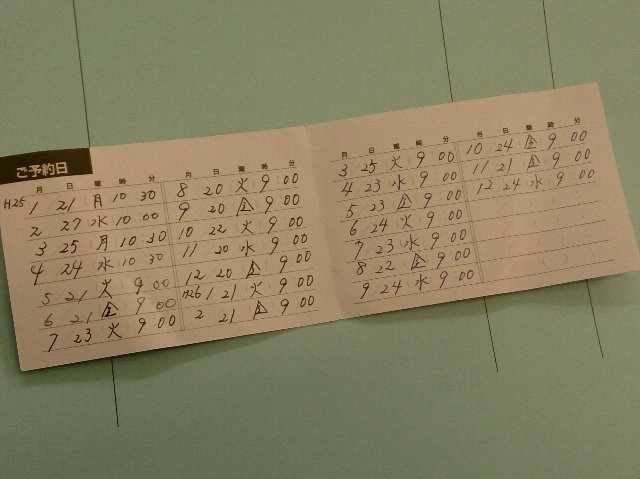 ご予約日
月 日 曜 時 分
H25 1 21 (月) 10 30
2 27 (水) 10 00
3 25 (月) 10 30
4 24 (水) 10 30
5 21 (火) 9 00
6 21 (金) 9 00
7 23 (火) 9 00
月 日 曜 時 分
8 20 (火) 9 00
9 20 (金) 9 00
10 22 (火) 9 00
11 20 (水) 9 00
12 20 (金) 9 00
H26 1 21 (火) 9 00
2 21 (金) 9 00
月 日 曜 時 分
3 25 (火) 9 00
4 23 (水) 9 00
5 23 (金) 9 00
6 24 (火) 9 00
7 23 (水) 9 00
8 22 (金) 9 00
9 24 (水) 9 00
月 日 曜 時 分
10 24 (金) 9 00
11 21 (金) 9 00
12 24 (水) 9 00